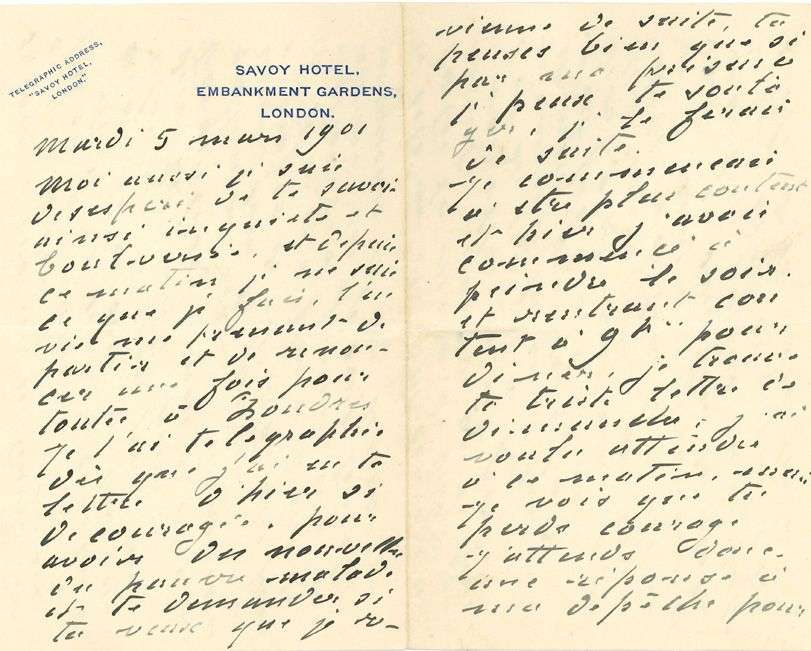 TELEGRAPHIC ADDRESS,
"SAVOY HOTEL,
LONDON."
SAVOY HOTEL,
EMBANKMENT GARDENS,
LONDON.
Mardi 5 mars 1901
Moi aussi je suis
desesperé de te savoir
ainsi inquiete et
bouleversée, et depuis
ce matin je ne sais
ce que je fais, l'en
vie me prenant de
partir et de renon-
cer une fois pour
toute à Londres
Je t'ai telegraphié
dès que j'ai eu ta
lettre d'hier si
decouragée, pour
avoir des nouvelles
du pauvre malade
et te demander si
tu veux que je re-
vienne de suite, tu
penses bien que si
par ma presence
je peux te soula
ger, je le ferais
de suite.
Je commencais
à etre plus content
et hier j'avais
commencé à
peindre le soir.
et rentrant con
tent à 9h pour
diner, je trouve
ta triste lettre de
dimanche, j'ai
voulu attendre
à ce matin, mais
je vois que tu
perds courage
j'attends donc
une réponse à
ma depêche pour